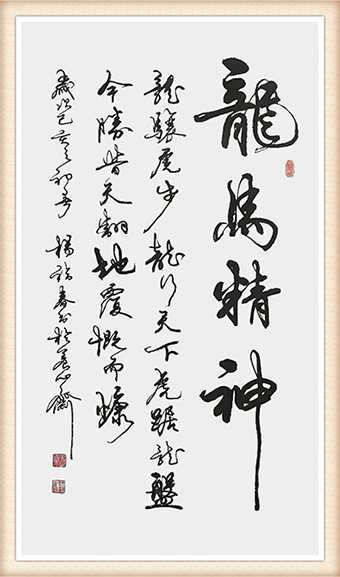 龍馬精神
龍驤虎步龍行天下虎踞龍盤
今勝昔天翻地覆慨而慷
歲次己亥之初春 楊詠春書於養心齋